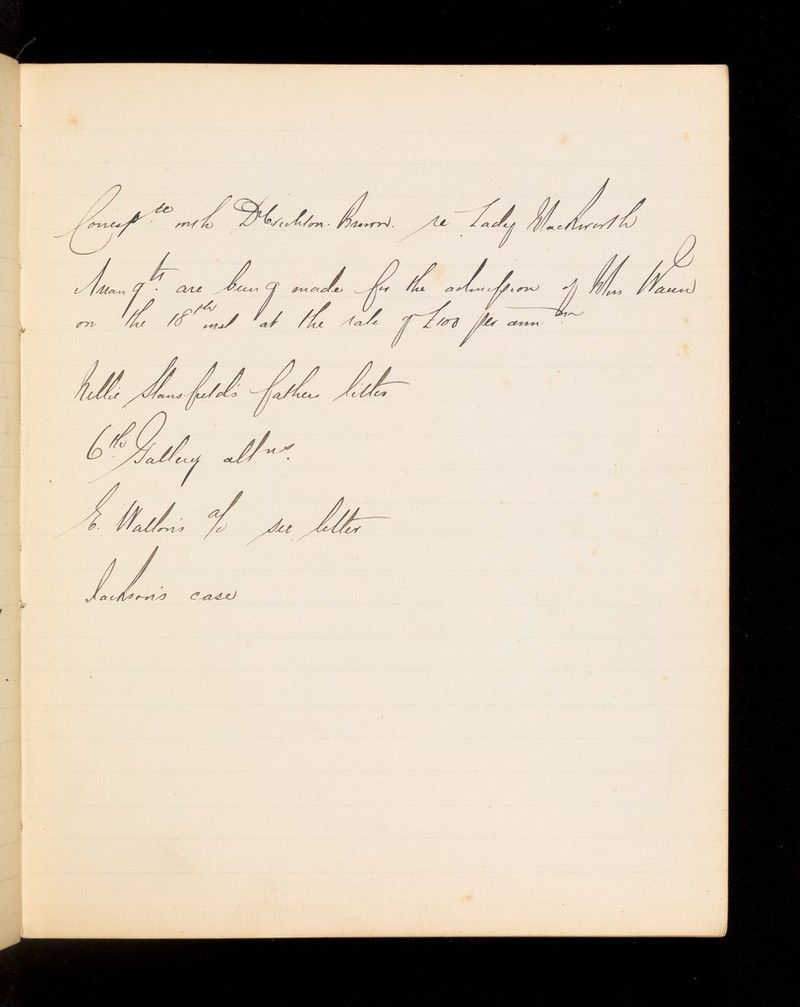 Corresp.ce with Dr Crichton-Brown. re Lady Mackworth
Arrangts. are being made for the admission of Miss
on the 18th inst at the rate of £100 per annum
Nellie Stansfield's father letter
6th Gallery altns.
E. Walton's a/c see letter
Jackson's case